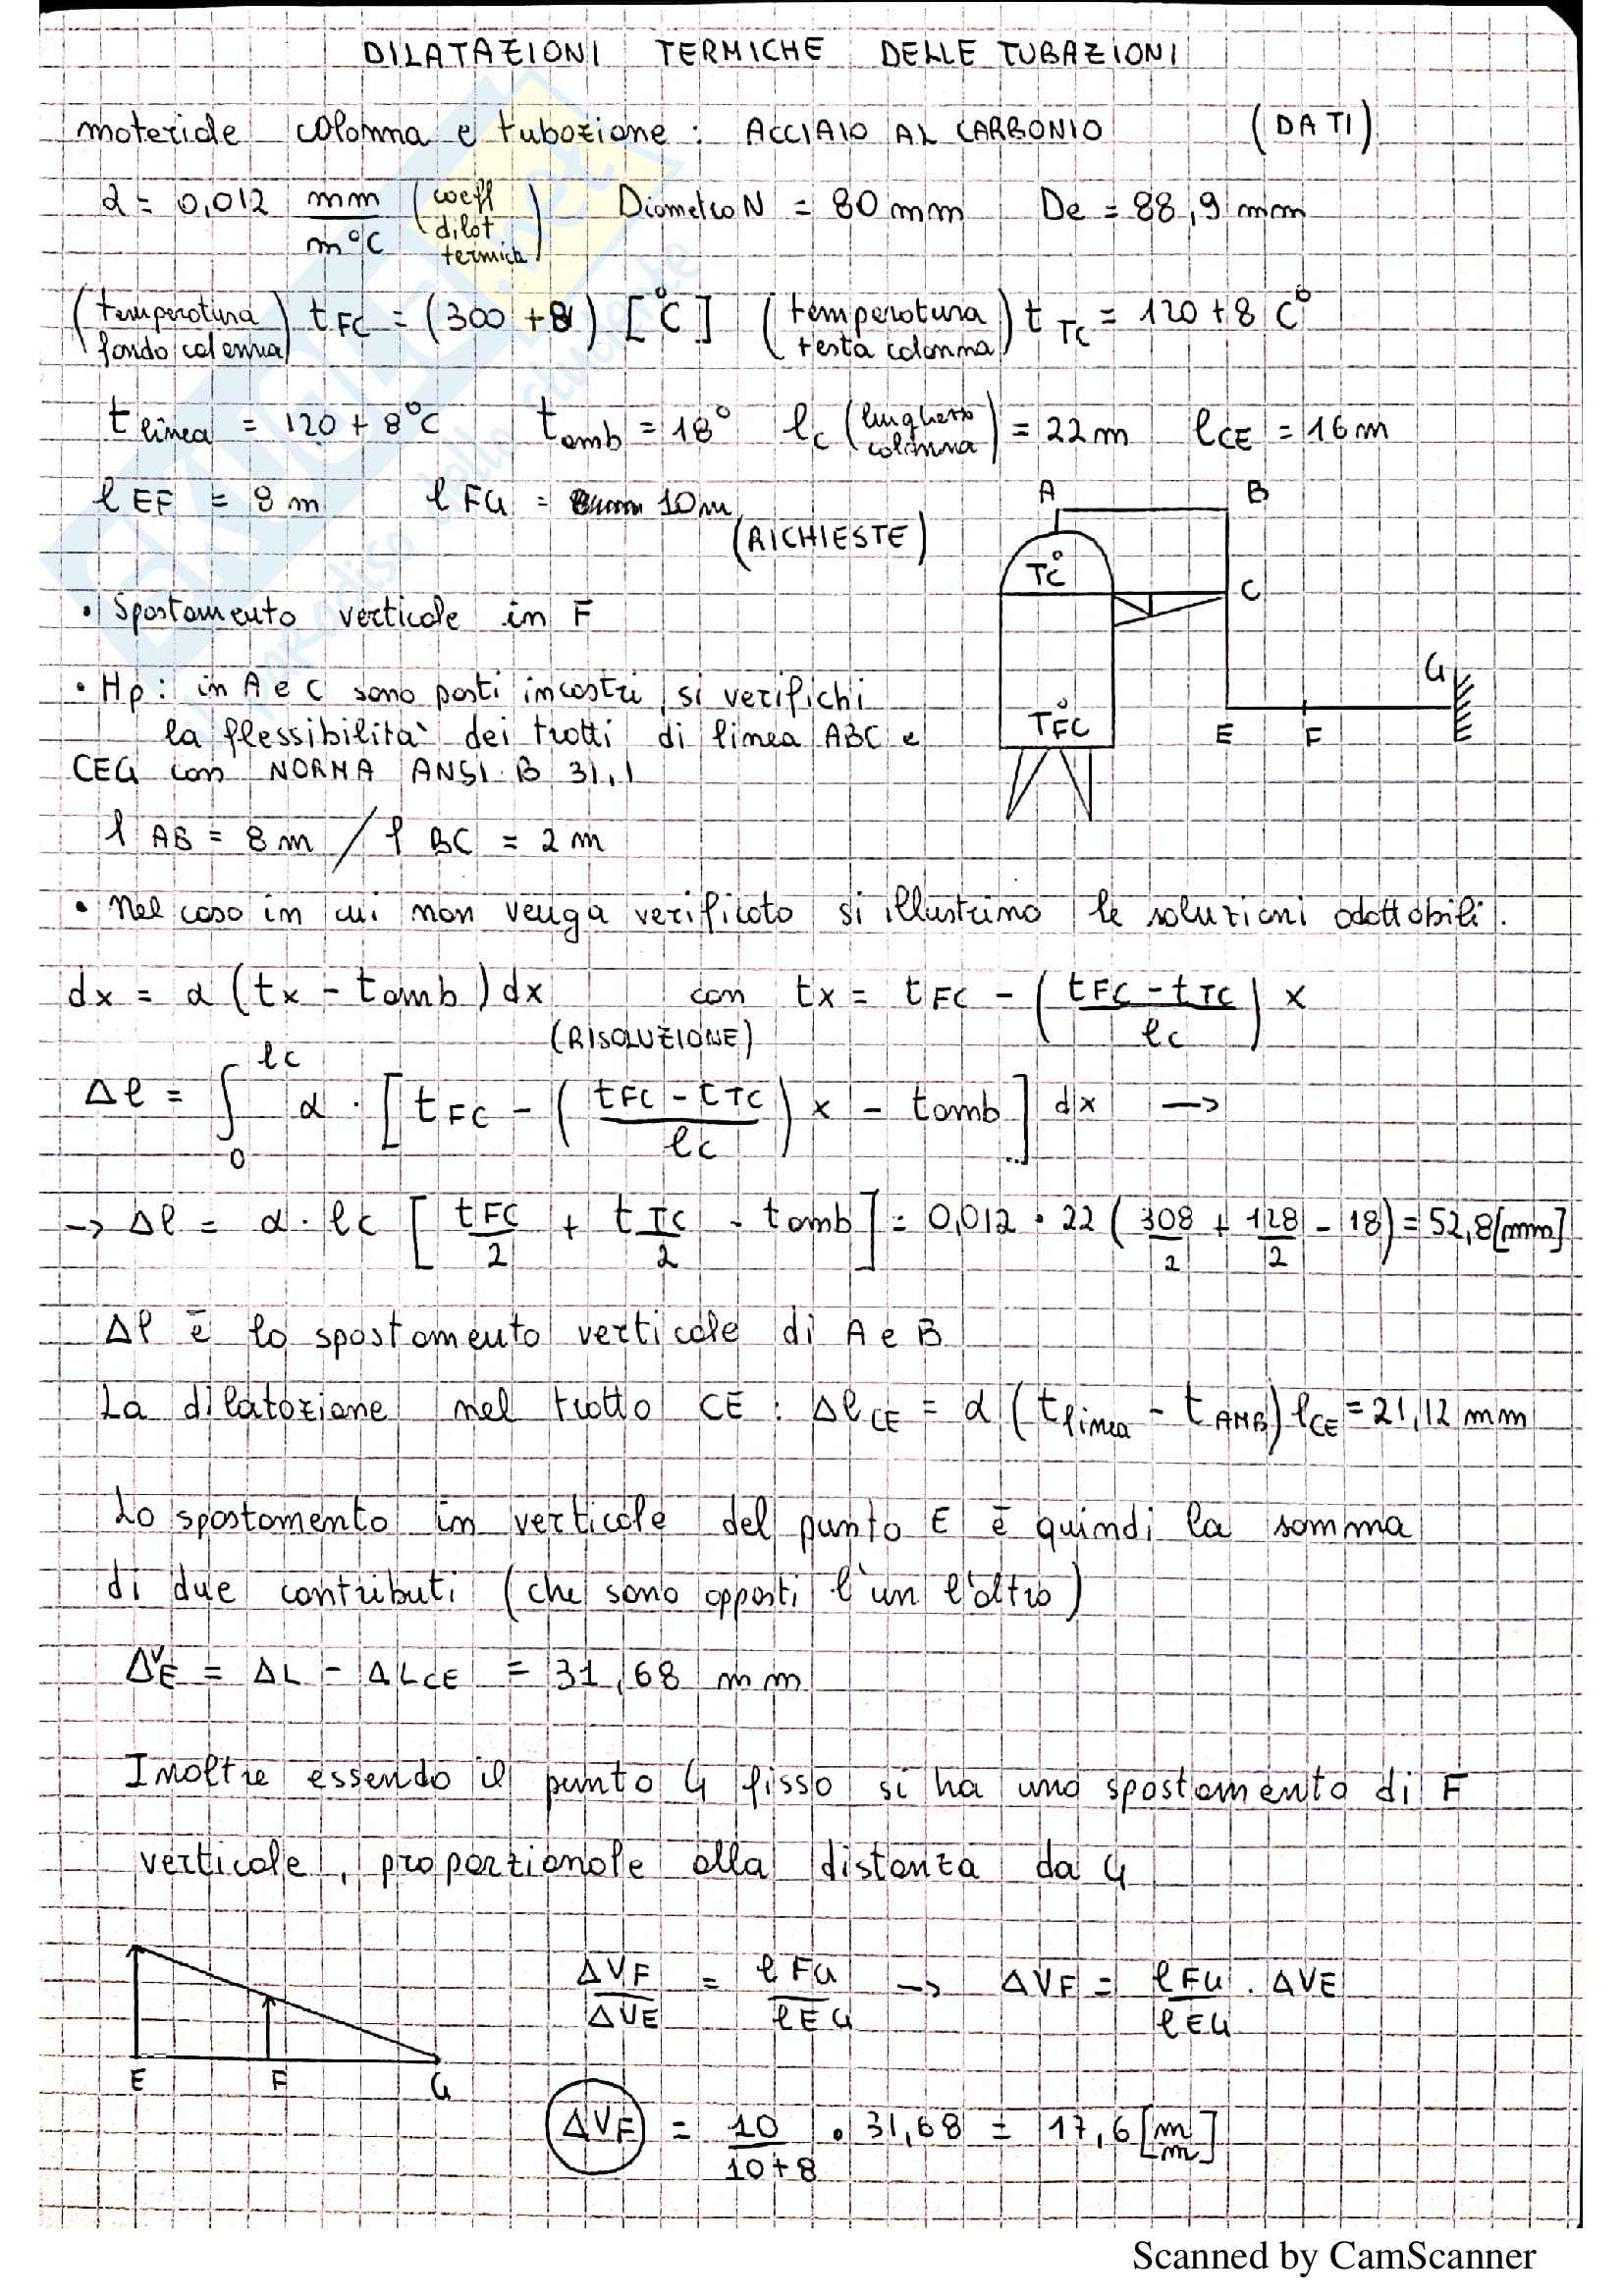 DILATAZIONI TERMICHE DELLE TUBAZIONI
materiale colonna e tubazione : ACCIAIO AL CARBONIO (DATI)
α = 0,012 mm/m°C (coeff dilat termica) Diametro N = 80 mm De = 88,9 mm
(temperatura fondo colonna) tFC = (300 + 8) [°C] (temperatura testa colonna) tTC = 120 + 8 C°
t linea = 120 + 8°C tamb = 18° lC (lunghezza colonna) = 22 m lCE = 16 m
l EF = 8 m l FG = 10 m
(RICHIESTE)
A B
TC°
C
• Spostamento verticale in F
G
• Hp : in A e C sono posti incastri, si verifichi
la flessibilità dei tratti di linea ABC e
TFC°
E F
CEG con NORMA ANSI B 31.1
l AB = 8 m / l BC = 2 m
• Nel caso in cui non venga verificato si illustrino le soluzioni adottabili.
dx = α (tx - tamb) dx con tx = tFC - (tFC - tTC / lC) x
(RISOLUZIONE)
Δl = ∫0lC α · [tFC - (tFC - tTC / lC) x - tamb] dx →
→ Δl = α · lC [tFC/2 + tTC/2 - tamb] = 0,012 · 22 (308/2 + 128/2 - 18) = 52,8 [mm]
Δl è lo spostamento verticale di A e B
La dilatazione nel tratto CE : ΔlCE = α (tlinea - tAMB) lCE = 21,12 mm
Lo spostamento in verticale del punto E è quindi la somma
di due contributi (che sono opposti l'un l'altro)
ΔVE = ΔL - ΔLCE = 31,68 mm
Inoltre essendo il punto G fisso si ha uno spostamento di F
verticale, proporzionale alla distanza da G
ΔVF/ΔVE = lFG/lEG → ΔVF = lFG/lEG · ΔVE
E F G
ΔVF = 10/10+8 · 31,68 = 17,6 [mm]
Scanned by CamScanner